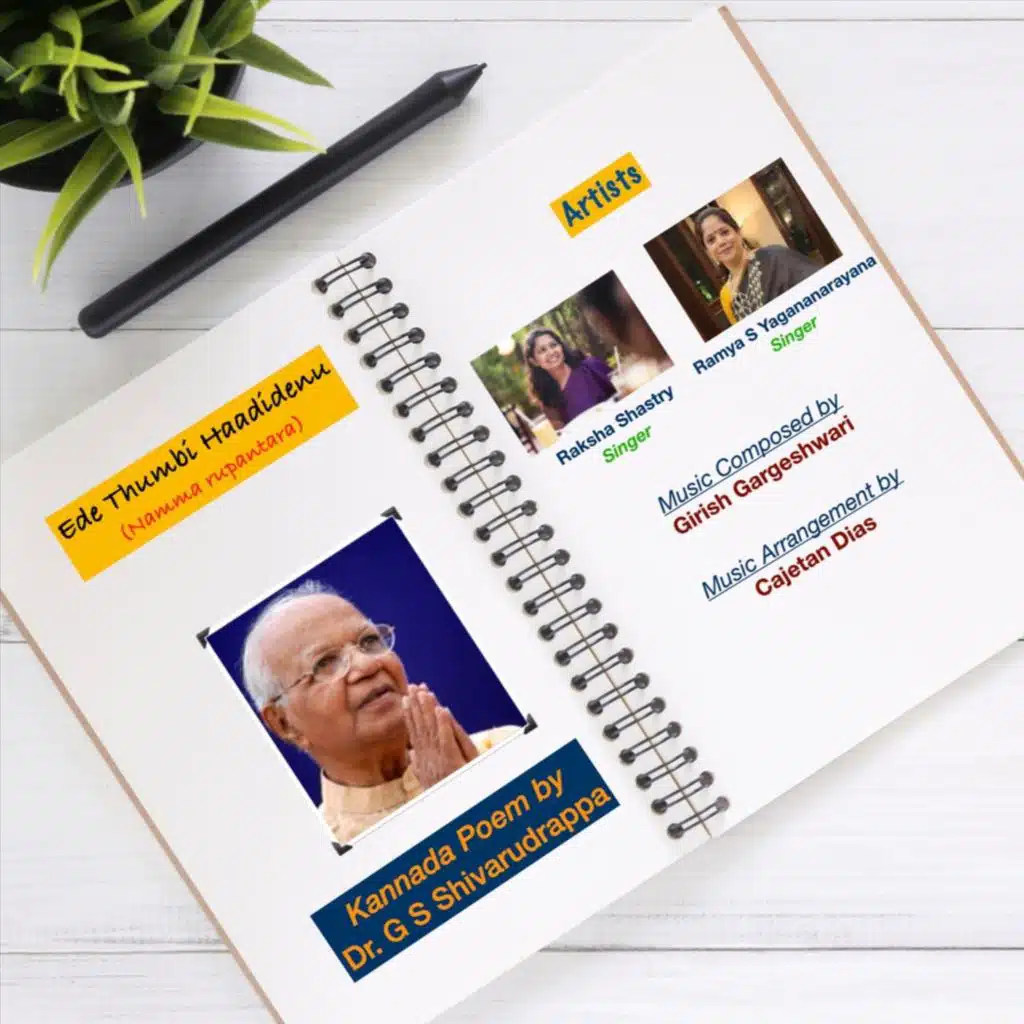 Ede Thumbi Haadidenu
(Namma rupantara)
Kannada Poem by
Dr. G S Shivarudrappa
Artists
Raksha Shastry
Singer
Ramya S Yagananarayana
Singer
Music Composed by
Girish Gargeshwari
Music Arrangement by
Cajetan Dias